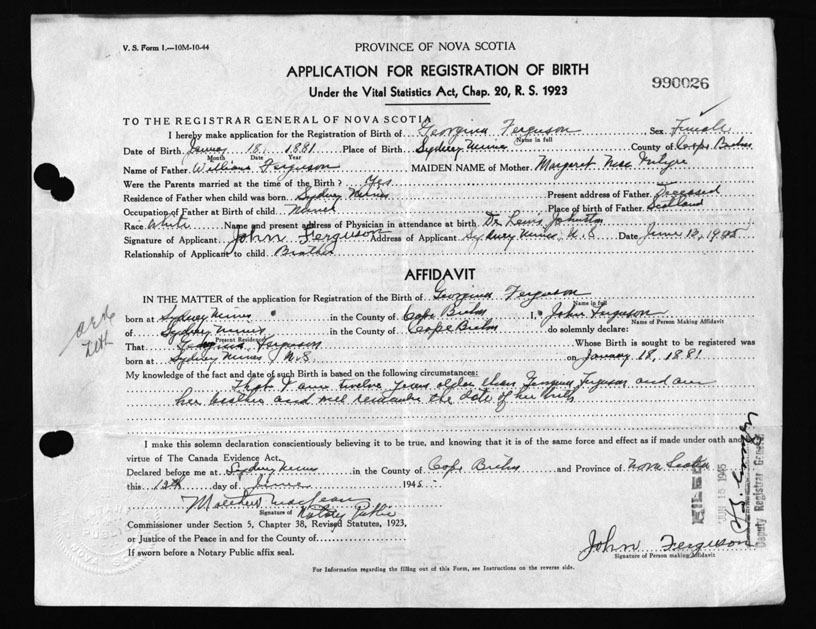 V. S. Form 1.—10M-10-44
PROVINCE OF NOVA SCOTIA
APPLICATION FOR REGISTRATION OF BIRTH
Under the Vital Statistics Act, Chap. 20, R. S. 1923
990026
TO THE REGISTRAR GENERAL OF NOVA SCOTIA
I hereby make application for the Registration of Birth of Georgina Ferguson Sex Female
Name in full
Date of Birth January 18, 1881 Place of Birth Sydney Mines County of Cape Breton
Month Date Year
Name of Father William Ferguson MAIDEN NAME of Mother Margaret
Were the Parents married at the time of the Birth? Yes
Residence of Father when child was born Sydney Mines Present address of Father Deceased
Occupation of Father at Birth of child Miner Place of birth of Father Scotland
Race White Name and present address of Physician in attendance at birth Dr Lewis Johnston
Signature of Applicant John Ferguson Address of Applicant Sydney Mines, N.S Date June 13, 1945
Relationship of Applicant to child Brother
AFFIDAVIT
IN THE MATTER of the application for Registration of the Birth of Georgina Ferguson
Name in full
born at Sydney Mines in the County of Cape Breton I, John Ferguson
Name of Person Making Affidavit
of Sydney Mines in the County of Cape Breton do solemnly declare:
Present Residence
That Georgina Ferguson Whose Birth is sought to be registered was
born at Sydney Mines, N.S on January 18, 1881
My knowledge of the fact and date of such Birth is based on the following circumstances:
That I am twelve years older than Georgina Ferguson and am
her brother and well remember the date of her birth
I make this solemn declaration conscientiously believing it to be true, and knowing that it is of the same force and effect as if made under oath and by
virtue of The Canada Evidence Act.
Declared before me at Sydney Mines in the County of Cape Breton and Province of Nova Scotia
this 13th day of June 1945
Matthew MacLean
Signature of Notary Public
Commissioner under Section 5, Chapter 38, Revised Statutes, 1923,
or Justice of the Peace in and for the County of
If sworn before a Notary Public affix seal.
John Ferguson
Signature of Person making Affidavit
For Information regarding the filling out of this Form, see Instructions on the reverse side.
FILED
JUN 15 1945
Deputy Registrar General